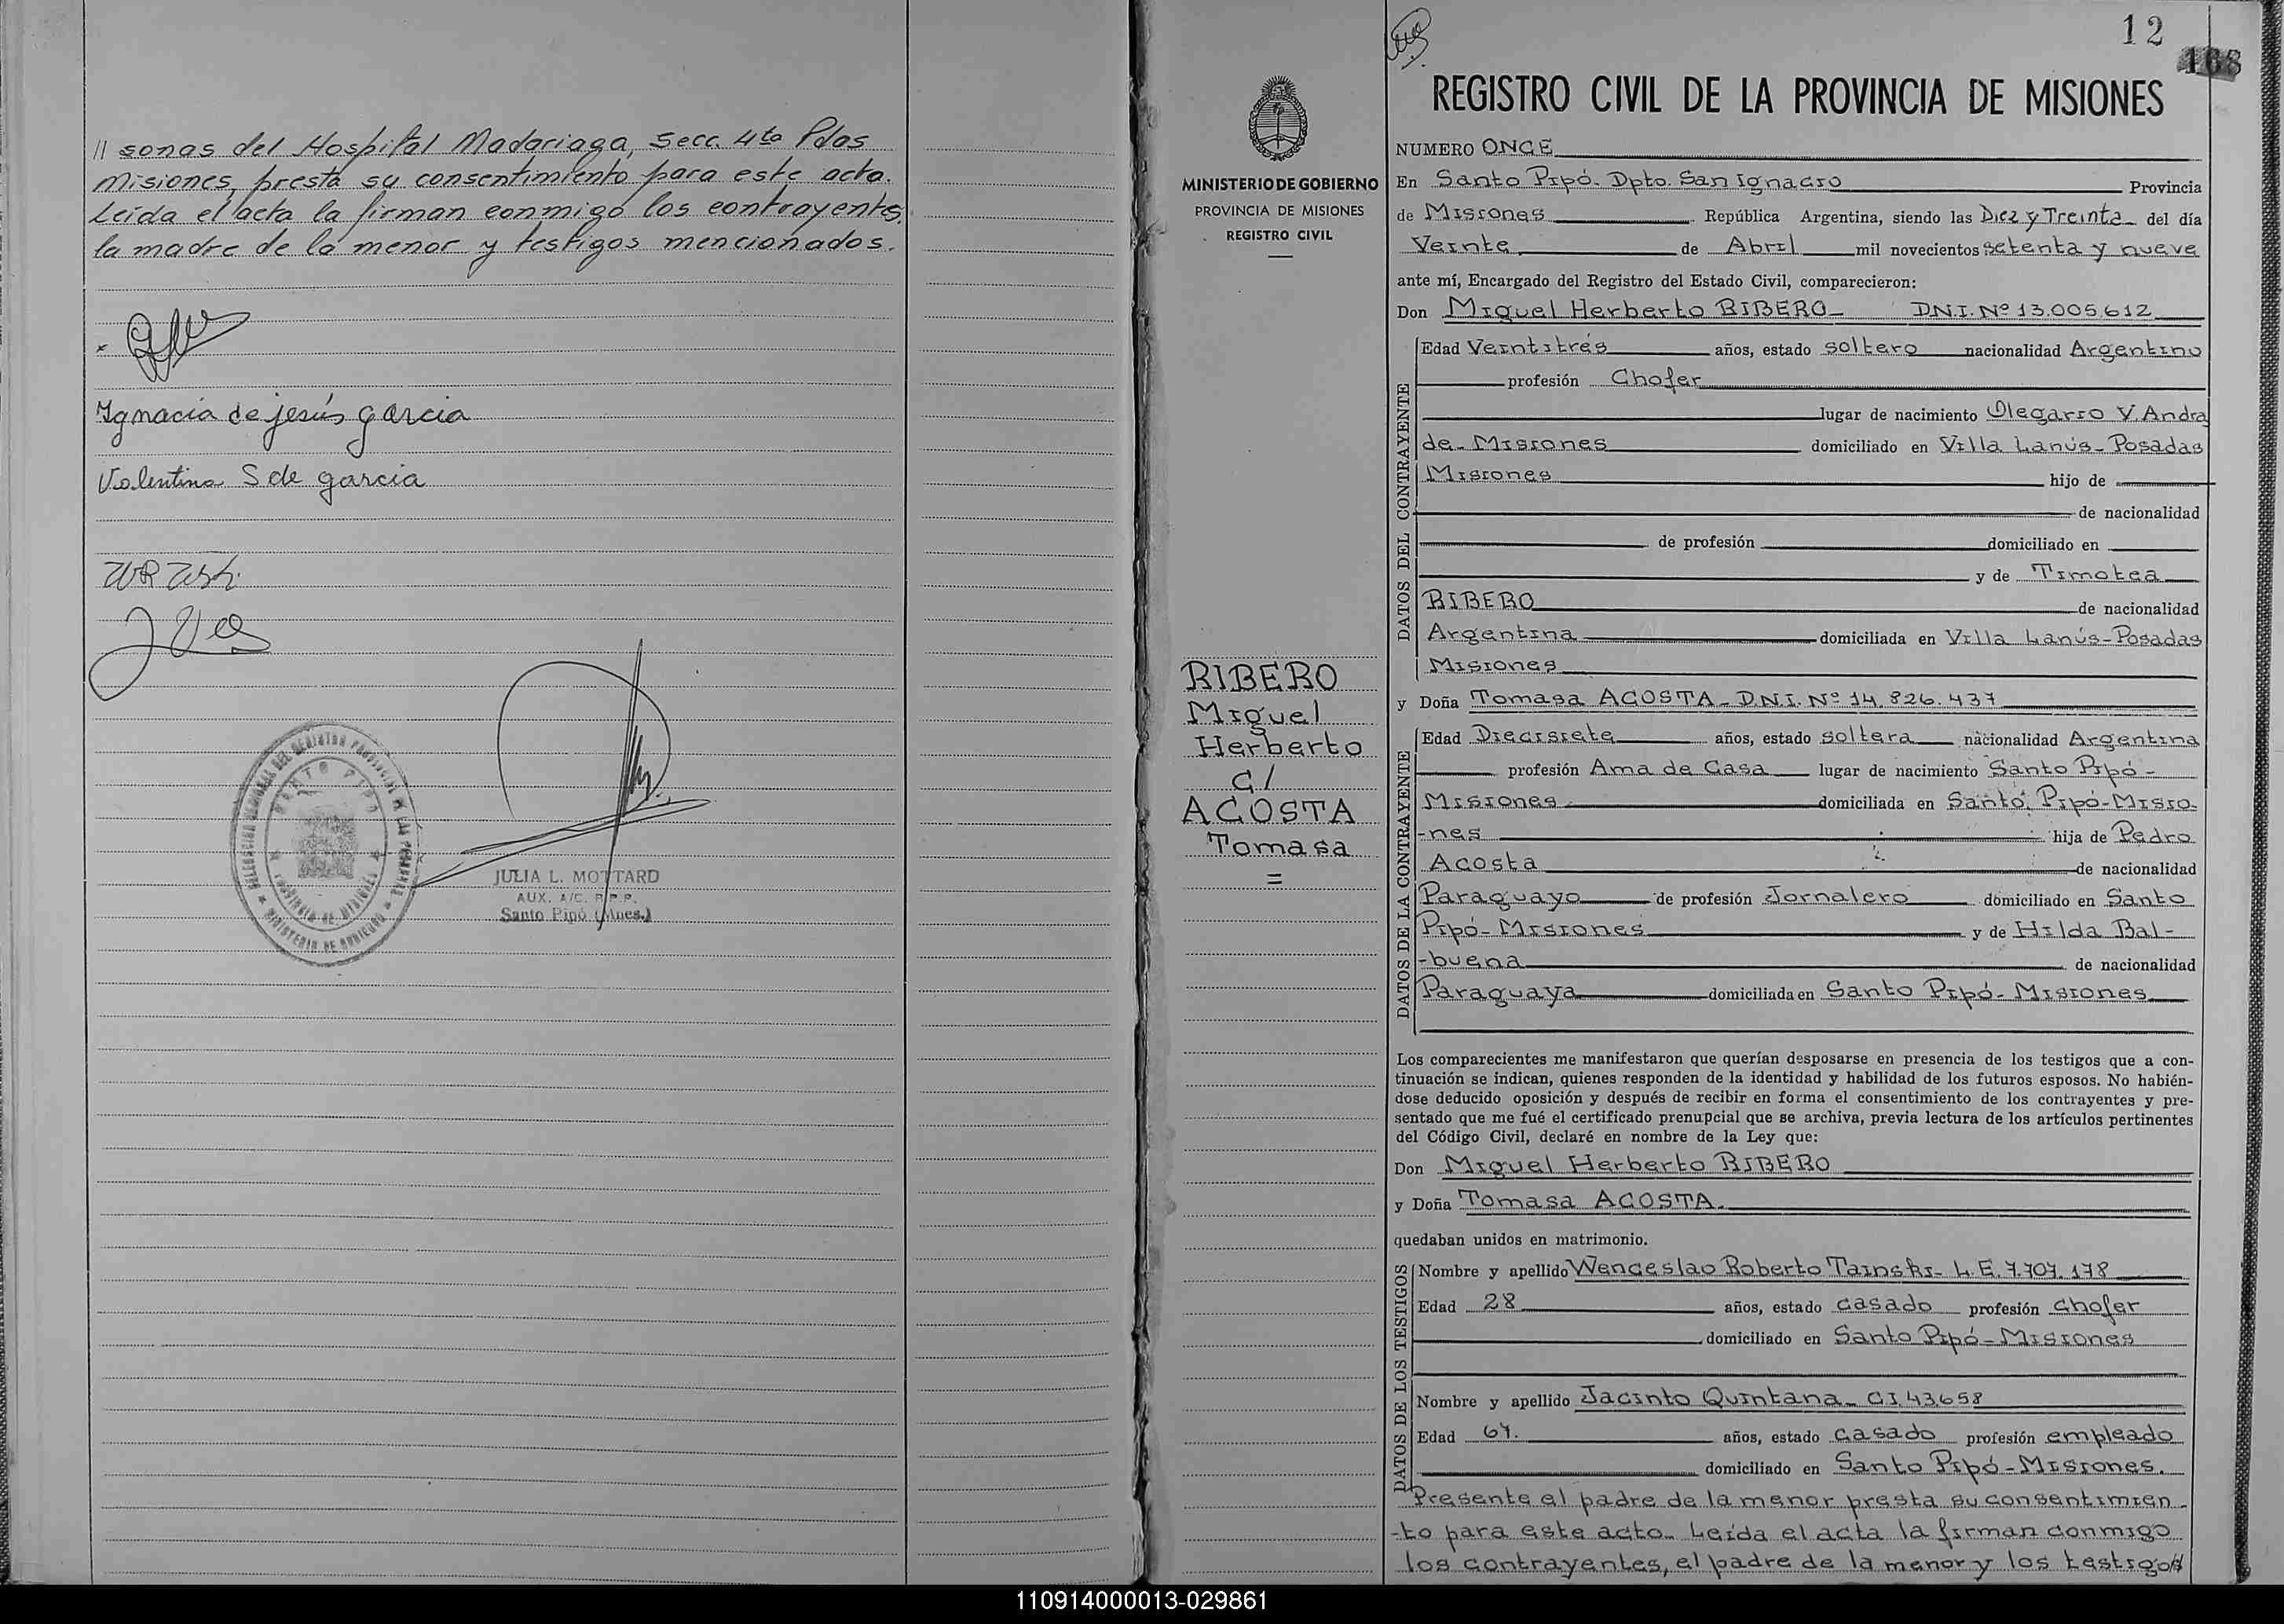 // sonas del Hospital Madariaga, Secc. 4ta Pdas
Misiones, presta su consentimiento para este acto.
Leída el acta la firman conmigo los contrayentes,
la madre de la menor y testigos mencionados.
Ignacia de jesús garcia
Valentina S de garcia
JULIA L. MOTTARD
AUX. A/C. R.P.P.
Santo Pipó (Mnes.)
SANTO PIPO
MINISTERIO DE GOBIERNO
MINISTERIO DE GOBIERNO
PROVINCIA DE MISIONES
REGISTRO CIVIL
RIBERO
Miguel
Herberto
C/
ACOSTA
Tomasa
=
12
168
REGISTRO CIVIL DE LA PROVINCIA DE MISIONES
NUMERO ONCE
En Santo Pipó. Dpto. San Ignacio Provincia
de Misiones República Argentina, siendo las Diez y Treinta del día
Veinte de Abril mil novecientos setenta y nueve
ante mí, Encargado del Registro del Estado Civil, comparecieron:
Don Miguel Herberto RIBERO- D.N.I. Nº 13.005.612
DATOS DEL CONTRAYENTE
Edad Veintitrés años, estado soltero nacionalidad Argentino
profesión Chofer
lugar de nacimiento Olegario V. Andra
de- Misiones domiciliado en Villa Lanús- Posadas
Misiones hijo de
de nacionalidad
de profesión domiciliado en
y de Timotea
RIBERO de nacionalidad
Argentina domiciliada en Villa Lanús-Posadas
Misiones
y Doña Tomasa ACOSTA- D.N.I. Nº 14.826.437
DATOS DE LA CONTRAYENTE
Edad Diecisiete años, estado soltera nacionalidad Argentina
profesión Ama de Casa lugar de nacimiento Santo Pipó-
Misiones domiciliada en Santo Pipó-Misio-
-nes hija de Pedro
Acosta de nacionalidad
Paraguayo de profesión Jornalero domiciliado en Santo
Pipó- Misiones y de Hilda Bal-
-buena de nacionalidad
Paraguaya domiciliada en Santo Pipó- Misiones
Los comparecientes me manifestaron que querían desposarse en presencia de los testigos que a con-
tinuación se indican, quienes responden de la identidad y habilidad de los futuros esposos. No habién-
dose deducido oposición y después de recibir en forma el consentimiento de los contrayentes y pre-
sentado que me fué el certificado prenupcial que se archiva, previa lectura de los artículos pertinentes
del Código Civil, declaré en nombre de la Ley que:
Don Miguel Herberto RIBERO
y Doña Tomasa ACOSTA-
quedaban unidos en matrimonio.
DATOS DE LOS TESTIGOS
Nombre y apellido Wenceslao Roberto Tainski- L.E. 7.707.178
Edad 28 años, estado casado profesión chofer
domiciliado en Santo Pipó-Misiones
Nombre y apellido Jacinto Quintana- C.I. 43.658
Edad 67. años, estado casado profesión empleado
domiciliado en Santo Pipó-Misiones.
Presente el padre de la menor presta su consentimien
-to para este acto- Leída el acta la firman conmigo
los contrayentes, el padre de la menor y los testigos
110914000013-029861